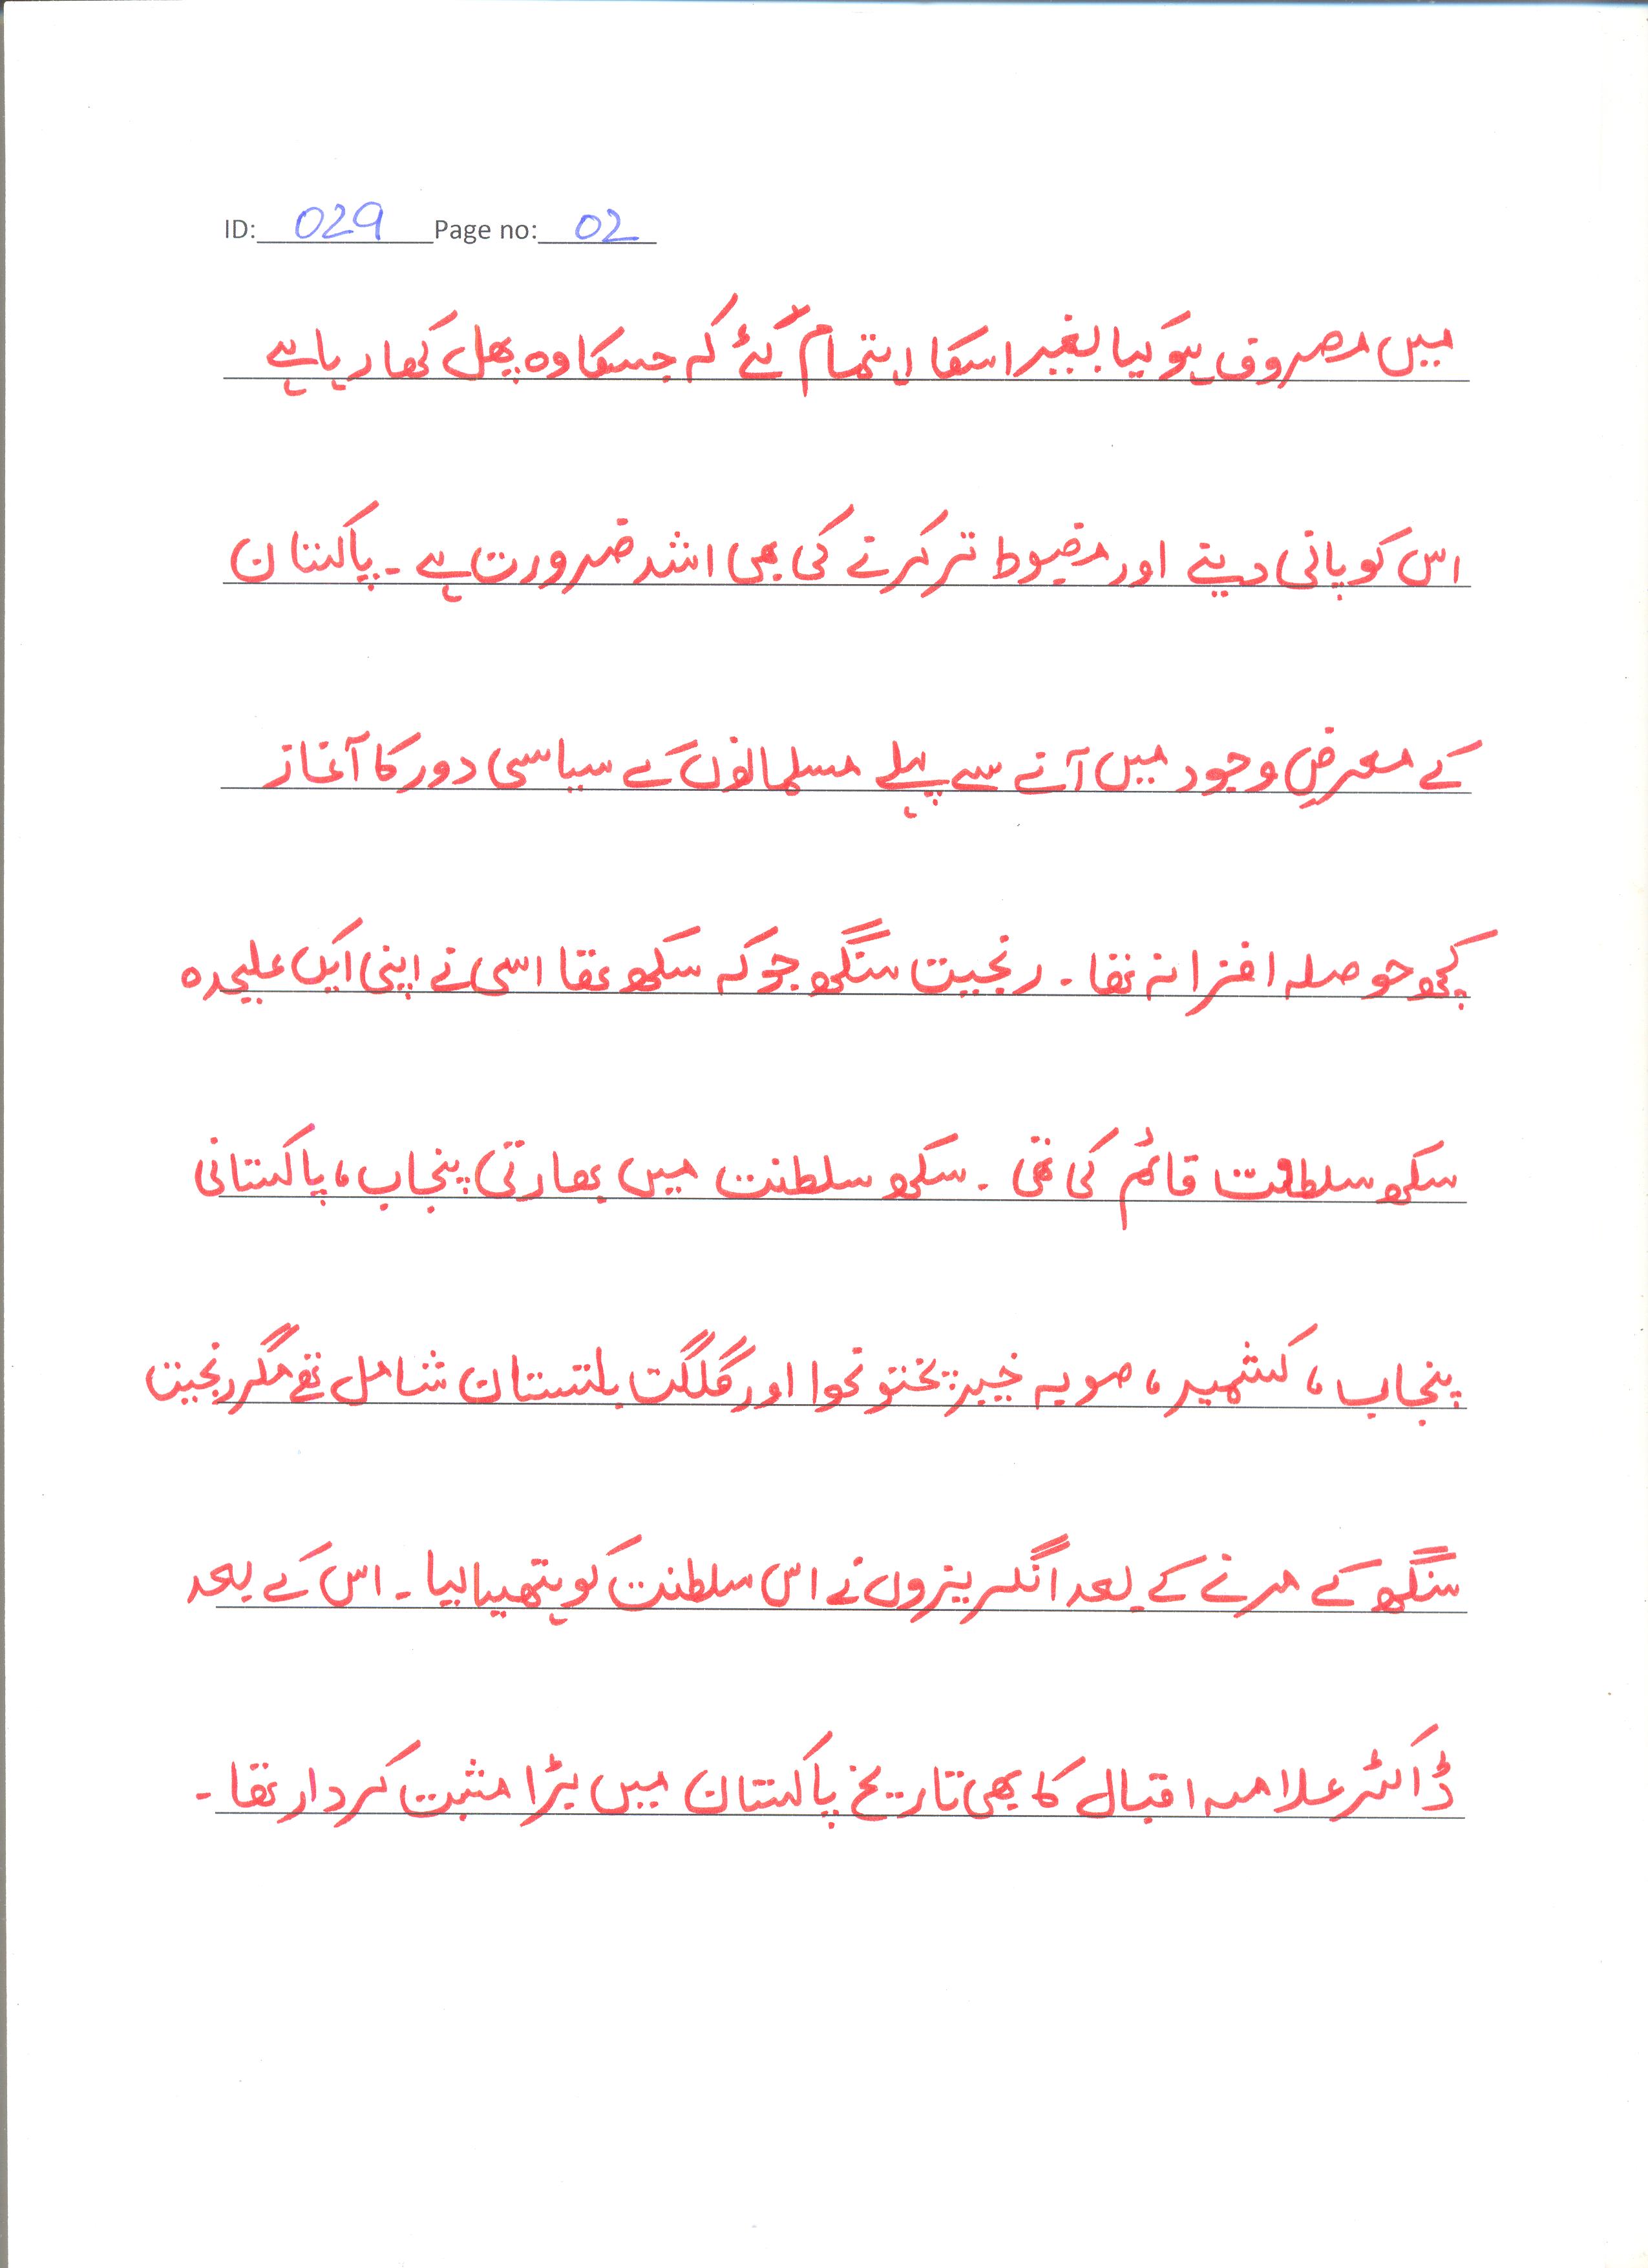 ID: 029 Page no: 02
میں مصروف ہو گیا بغیر اسکا اہتمام کئے کہ جسکا وہ پھل کھا رہا ہے
اس کو پانی دینے اور مضبوط تر کرنے کی بھی اشد ضرورت ہے ۔ پاکستان
کے معرضِ وجود میں آنے سے پہلے مسلمانوں کے سیاسی دور کا آغاز
کچھ حوصلہ افزا نہ تھا ۔ رنجیت سنگھ جو کہ سکھ تھا اسی نے اپنی ایک علیحدہ
سکھ سلطنت قائم کی تھی ۔ سکھ سلطنت میں بھارتی پنجاب ، پاکستانی
پنجاب ، کشمیر ، صوبہ خیبر پختونخوا اور گلگت بلتستان شامل تھے مگر رنجیت
سنگھ کے مرنے کے بعد انگریزوں نے اس سلطنت کو ہتھیا لیا ۔ اس کے بعد
ڈاکٹر علامہ اقبال کا بھی تاریخ پاکستان میں بڑا مثبت کردار تھا ۔